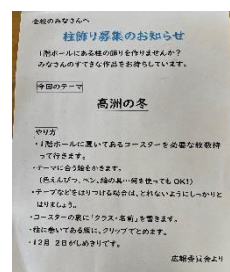 全校のみなさんへ
柱飾り募集のお知らせ
1階ホールにある柱の飾りを作りませんか?
みなさんのすてきな作品をお待ちしています。
今回のテーマ
高洲の冬
やり方
・1階ホールに置いてあるコースターを必要な枚数持
って行きます。
・テーマに合う絵をかきます。
(色えんぴつ、ペン、絵の具…何を使っても OK!)
・テープなどをはりつける場合は、とれないようにしっかりと
はりましょう。
・コースターの裏に「クラス・名前」を書きます。
・柱に巻いてある麻に、クリップでとめます。
・12月 2日がしめきりです。
広報委員会より